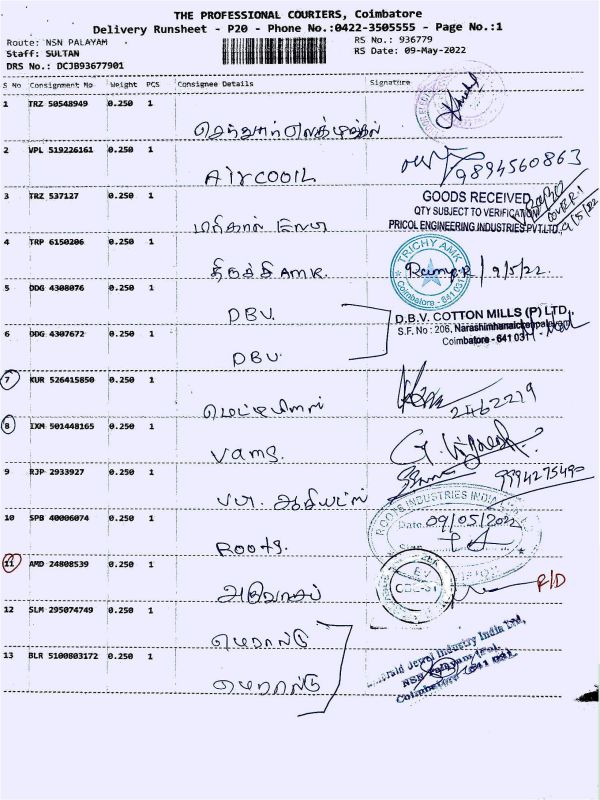 THE PROFESSIONAL COURIERS, Coimbatore
Delivery Runsheet - P20 - Phone No.:0422-3505555 - Page No.:1
Route: NSN PALAYAM
RS No.: 936779
Staff: SULTAN
RS Date: 09-May-2022
DRS No.: DCJB93677901
S No Consignment No Weight PCS Consignee Details Signature
1 TRZ 50548949 0.250 1
2 VPL 519226161 0.250 1 AIRCOOIL
9894560863
3 TRZ 537127 0.250 1
GOODS RECEIVED
QTY SUBJECT TO VERIFICATION
PRICOL ENGINEERING INDUSTRIES PVT.LTD.,
COVER-1
9/5/22
4 TRP 6150206 0.250 1 திருச்சி AMK.
TRICHY AMK
Coimbatore - 641 031
9/5/22.
5 DDG 4308076 0.250 1 DBV.
6 DDG 4307672 0.250 1 DBV.
D.B.V. COTTON MILLS (P) LTD.,
S.F. No : 206, Narashimhanaickenpalayam
Coimbatore - 641 031
7 KUR 526415850 0.250 1
2462219
8 IXM 501448165 0.250 1 Vams.
G. Vignesh
9 RJP 2933927 0.250 1
9994275490
10 SPB 40006074 0.250 1 Roots.
ROOTS INDUSTRIES INDIA
Date 09/05/2022
11 AMD 24808539 0.250 1
CBE-31
P/D
12 SLM 295074749 0.250 1 எமரால்டு
13 BLR 5100803172 0.250 1 எமரால்டு
Emerald Jewel Industry India Ltd,
NSN Palayam (Po),
Coimbatore 641 031.